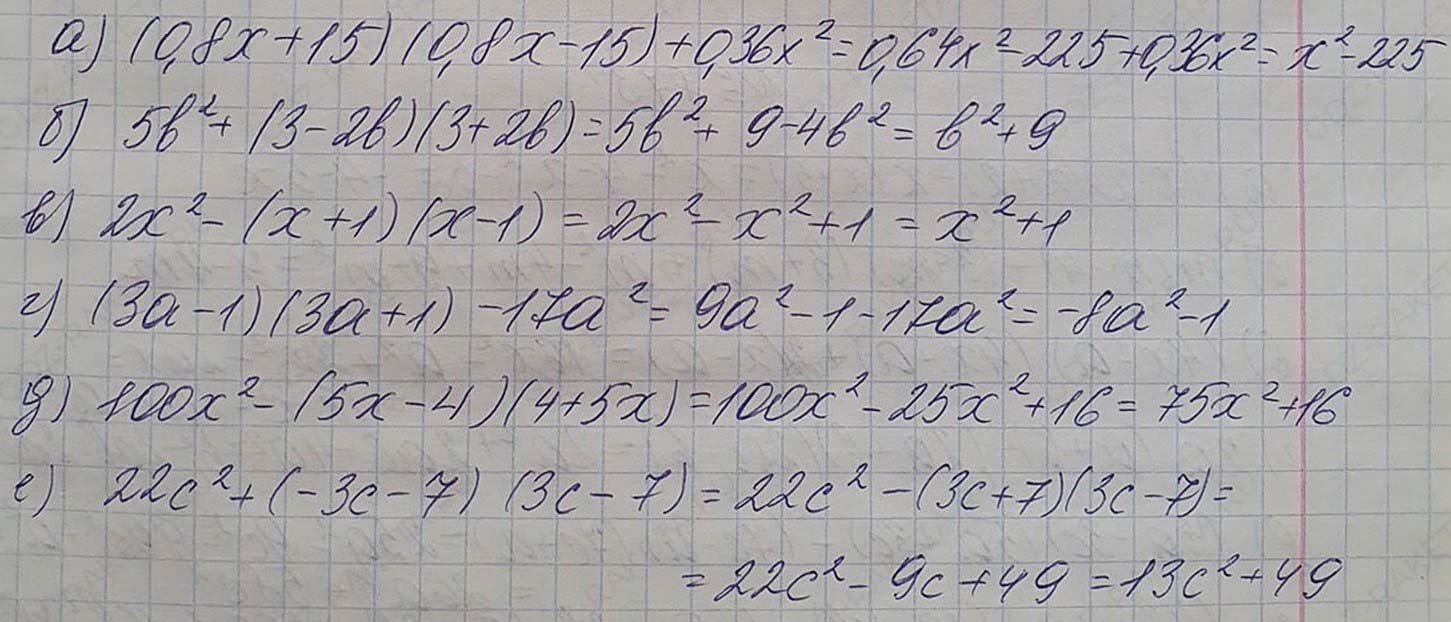 а) (0,8x+15)(0,8x-15)+0,36x²=0,64x²-225+0,36x²=x²-225
б) 5b²+(3-2b)(3+2b)=5b²+9-4b²=b²+9
в) 2x²-(x+1)(x-1)=2x²-x²+1=x²+1
г) (3a-1)(3a+1)-17a²=9a²-1-17a²=-8a²-1
д) 100x²-(5x-4)(4+5x)=100x²-25x²+16=75x²+16
е) 22c²+(-3c-7)(3c-7)=22c²-(3c+7)(3c-7)=
=22c²-9c+49=13c²+49